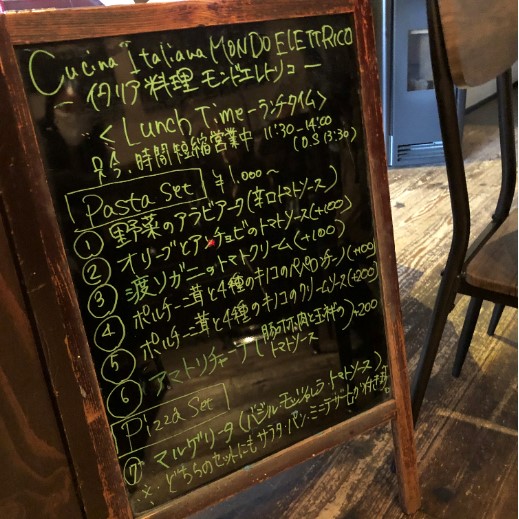 Cucina Italiana MONDO ELETTRICO
ー イタリア料理 モンドエレトリコ ー
＜LUNCH TIME-ランチタイム＞
只今、時間短縮営業中 11:30-14:00
(O.S 13:30)
Pasta Set ¥1,000〜
① 野菜のアラビアータ(辛口トマトソース)
② オリーブとアンチョビのトマトソース(+100)
③ 渡りガニのトマトクリーム(+100)
④ ポルチーニ茸と4種のキノコのペペロンチーノ(+100)
⑤ ポルチーニ茸と4種のキノコのクリームソース(+200)
⑥ アマトリチャーナ(豚のホホ肉と玉ねぎの
トマトソース)+200
Pizza Set
⑦ マルゲリータ(バジル・モッツァレラ・トマトソース)
※どちらのセットにもサラダ・パン・ミニデザートが付き